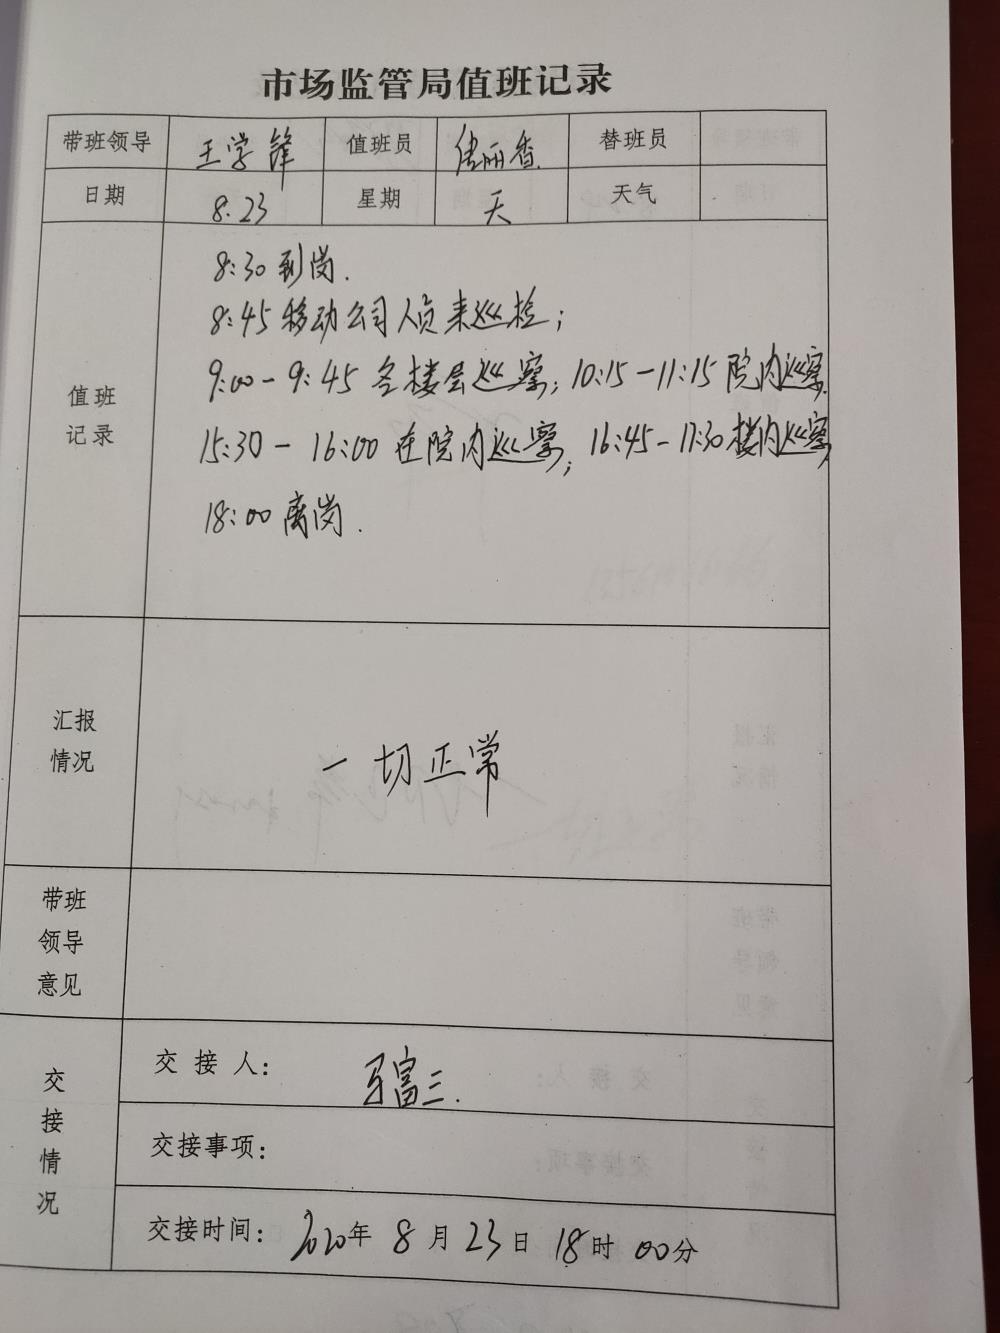 市场监管局值班记录
带班领导 王学锋 值班员 丽香 替班员
日期 8.23 星期 天 天气
值班
记录
8:30到岗.
8:45移动公司人员来巡检;
9:00-9:45各楼层巡察; 10:15-11:15院内巡察.
15:30-16:00在院内巡察; 16:45-17:30楼内巡察,
18:00离岗.
汇报
情况
一切正常
带班
领导
意见
交接情况
交接人: 马富三.
交接事项:
交接时间: 2020年8月23日18时00分